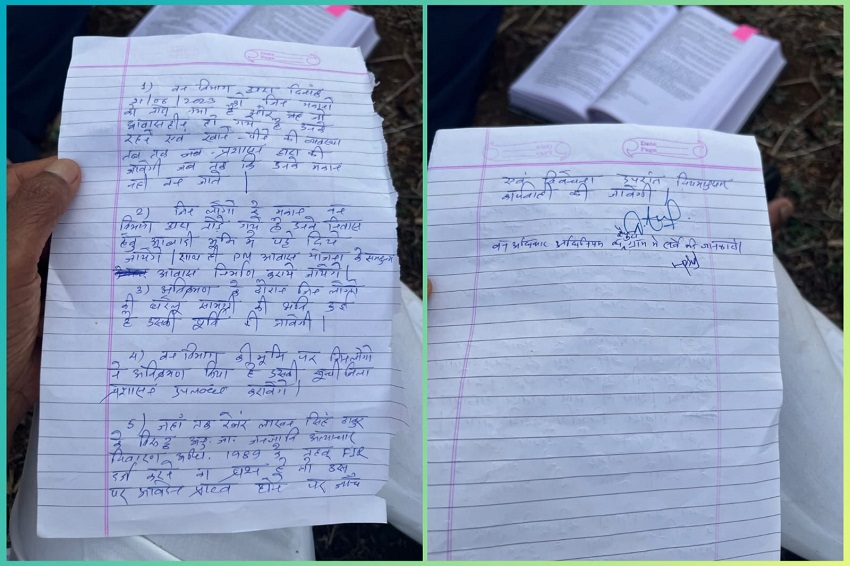 Date
Page
1) वन विभाग द्वारा दिनांक
21/06/2023 को जिन मकानों
को तोड़ा गया है और वह जो
आवासहीन हो गये है उनके
रहने एवं खाने पीने की व्यवस्था
तब तक जब प्रशासन द्वारा की
जावेगी जब तक कि उनके मकान
नही बन जाते |
2) जिन लोगो के मकान वन
विभाग द्वारा तोड़े गये है उनके निवास
हेतु आबादी भूमि में पट्टे दिये
जायेगे | साथ ही PM आवास योजना के
आवास निर्माण कराये जायेगे |
3) अतिक्रमण के दौरान जिन लोगो
की घरेलू सामग्री की क्षति हुई
है उसकी पूर्ति की जावेगी |
4) वन विभाग की भूमि पर जिन लोगो
ने अतिक्रमण किया है उसकी सूची जिला
प्रशासन उपलब्ध करावेंगे |
5) जहाँ तक रेंजर लाखन सिंह ठाकुर
के विरुद्ध अनु. जा. जनजाति अत्याचार
निवारण अधि. 1989 के तहत FIR
दर्ज करने का प्रश्न है तो इस
पर आवेदन प्राप्त होने पर जाँच
Date
Page
एवं विवेचना उपरांत नियमानुसार
कार्यवाही की जावेगी |
वन अधिकार अधिनियम ग्राम में की जावेगी